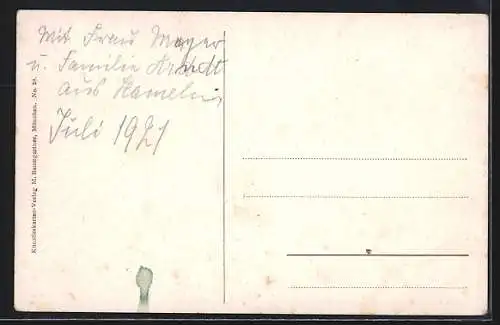 Mit Frau Mayer
u. Familie Arndt
aus Hameln
Juli 1921
Künstlerkarten-Verlag M. Baumgartner, München. No. 24.